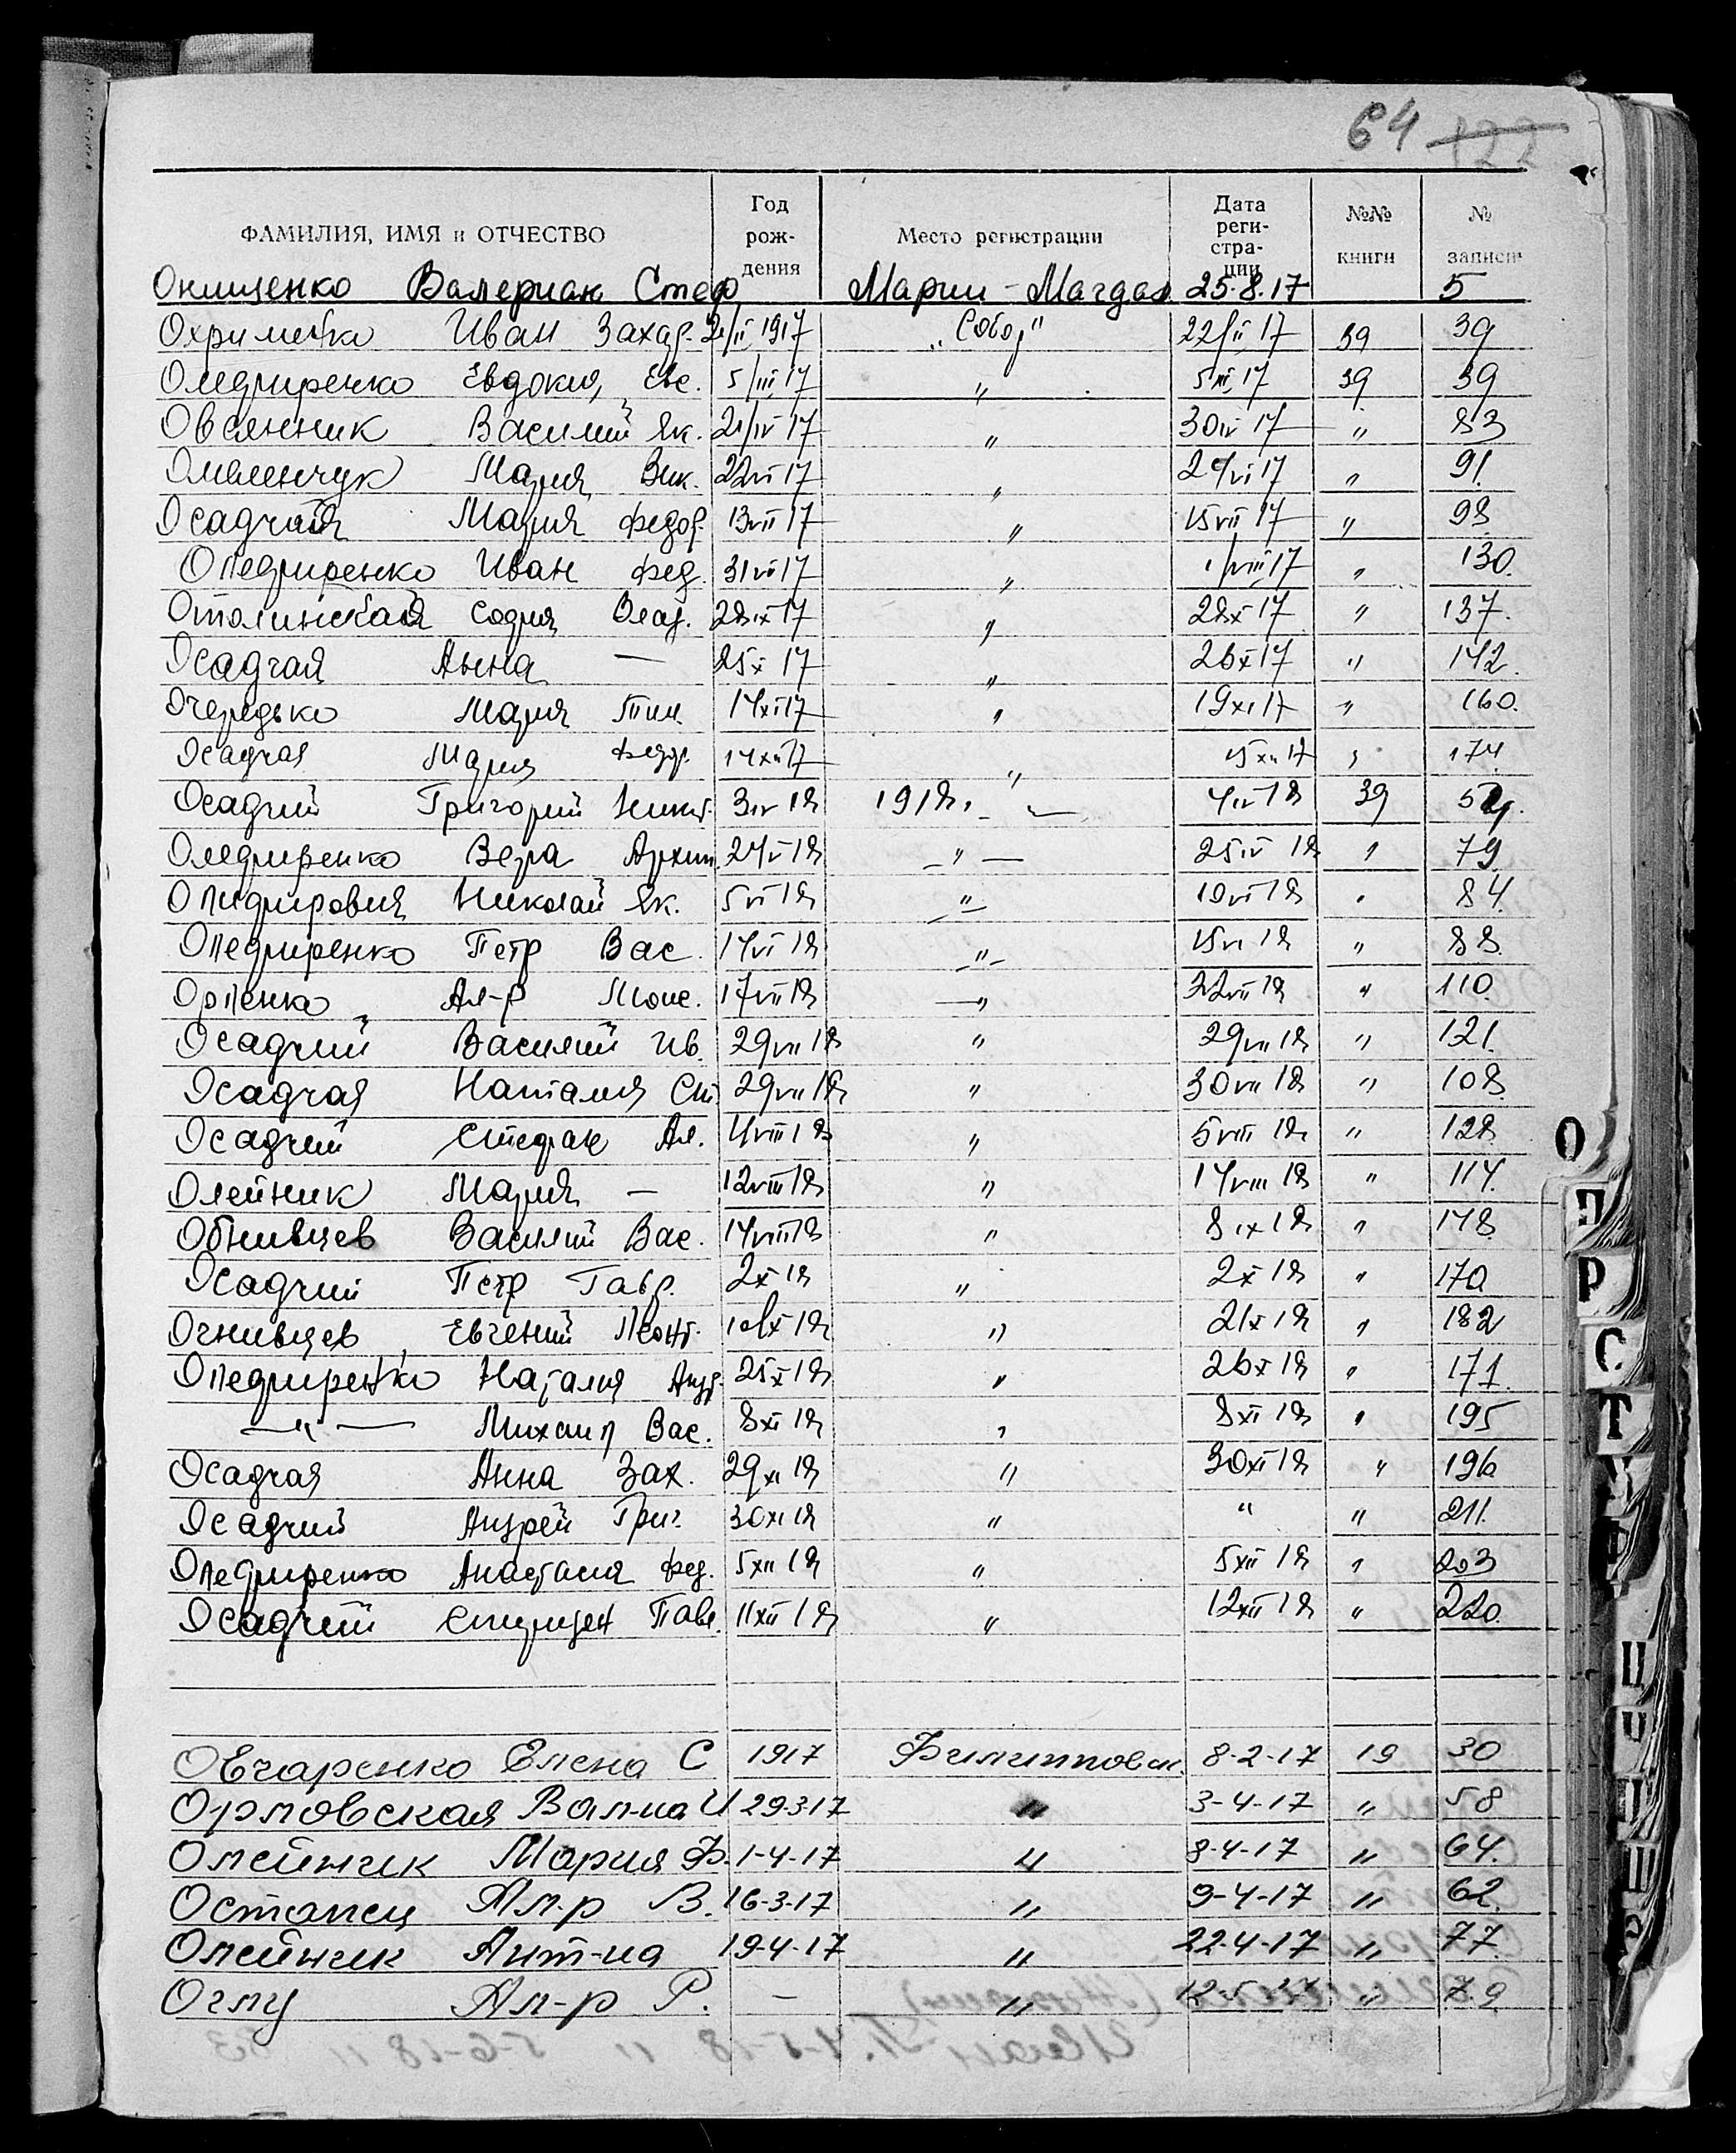 64 122
ФАМИЛИЯ, ИМЯ и ОТЧЕСТВО Год рож-дения Место регистрации Дата реги-стра-ции №№ книги № записи
Онищенко Валериан Стеф Марии-Магдал 25.8.17 5
Охрименко Иван Захар. 21/II 1917 "Собор" 22/II 17 39 39
Евдокия, Евс. 5/III 17 " 5 III 17 39 39
Овсянник Василий Як. 21/IV 17 " 30 IV 17 " 83
Мария Вик. 22 VI 17 " 24/VI 17 " 91.
Осадчая Мария Федор. 13 VII 17 " 15 VII 17 " 98
Опедмиренко Иван Фед. 31 VII 17 " 1/VIII 17 " 130.
София 28 IX 17 " 28 X 17 " 137.
Осадчая Анна — 25 X 17 " 26 X 17 " 142.
Очередько Мария Тим. 14 XI 17 " 19 XI 17 " 160.
Осадчая Мария Федор. 14 XII 17 " 15 XII 17 " 174.
Осадчий Григорий Никит. 3 IV 18 1918. " — 4 IV 18 39
Вера Архип. 24 IV 18 — " — 25 IV 18 " 79
Николай Як. 5 VI 18 " 10 VI 18 " 84.
Опедмиренко Петр Вас. 14 VI 18 — " — 15 VI 18 " 88.
Ал-р Моис. 17 VII 18 — " 22 VII 18 " 110.
Осадчий Василий Ив. 29 VII 18 " 29 VII 18 " 121.
Осадчая Наталия Ст. 29 VII 18 " 30 VII 18 " 108.
Осадчий Стефан Ал. 4 VIII 18 " 5 VIII 18 " 128.
Олейник Мария — 12 VIII 18 " 14 VIII 18 " 114.
Обнивцев Василий Вас. 14 VIII 18 " 8 IX 18 " 148.
Осадчий Петр Гавр. 2 X 18 " 2 X 18 " 170
Огнивцев Евгений Леонт. " 21 X 18 " 182
Опедмиренко Наталия Андр. 25 X 18 " 26 X 18 " 171.
— " — Михаил Вас. 8 XI 18 " 8 XI 18 " 195
Осадчая Анна Зах. 29 XI 18 " 30 XI 18 " 196
Осадчий Андрей Григ. 30 XI 18 " " " 211.
Опедмиренко Анастасия Фед. 5 XII 18 " 5 XII 18 " 203
Осадчий Спиридон Павл. 11 XII 18 " 12 XII 18 " 220.
Овчаренко Елена С 1917 Филипповск. 8-2-17 19 30
Орловская Вал-на И 29-3-17 " 3-4-17 " 58
Олейник Мария Ф. 1-4-17 " 8-4-17 " 64.
Остапец Ал-р В. 16-3-17 " 9-4-17 " 62.
Олейник Ант-на 19-4-17 " 22-4-17 " 77.
Оглу Ал-р Р. — " 12-5-17 " 79
О
П
Р
С
Т
У
Ф
Ц
Ч
Ш